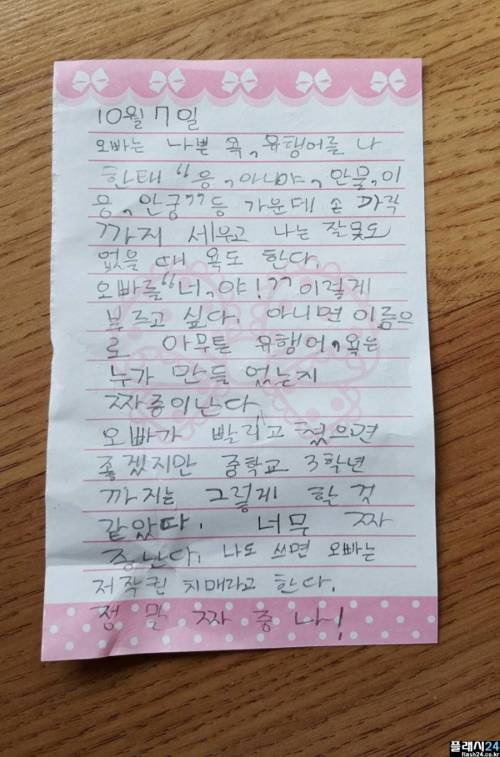 10월 7일
오빠는 나쁜 욕, 유행어를 나
한태 "응, 아니야, 안물, 이
응, 안궁" 등 가운데 손 까락
까지 세우고 나는 잘못도
없을 때 욕도 한다.
오빠를 "너, 야!" 이렇게
부르고 싶다. 아니면 이름으
로 아무튼 유행어, 욕은
누가 만들 었는지
짜증이난다
오빠가 빨리고 쳤으면
좋겠지만 중학교 3학년
까지는 그렇게 할 것
같았다. 너무 짜
증난다. 나도 쓰면 오빠는
저작권 치매라고 한다.
정말 짜증나!
플래시24
flash24.co.kr